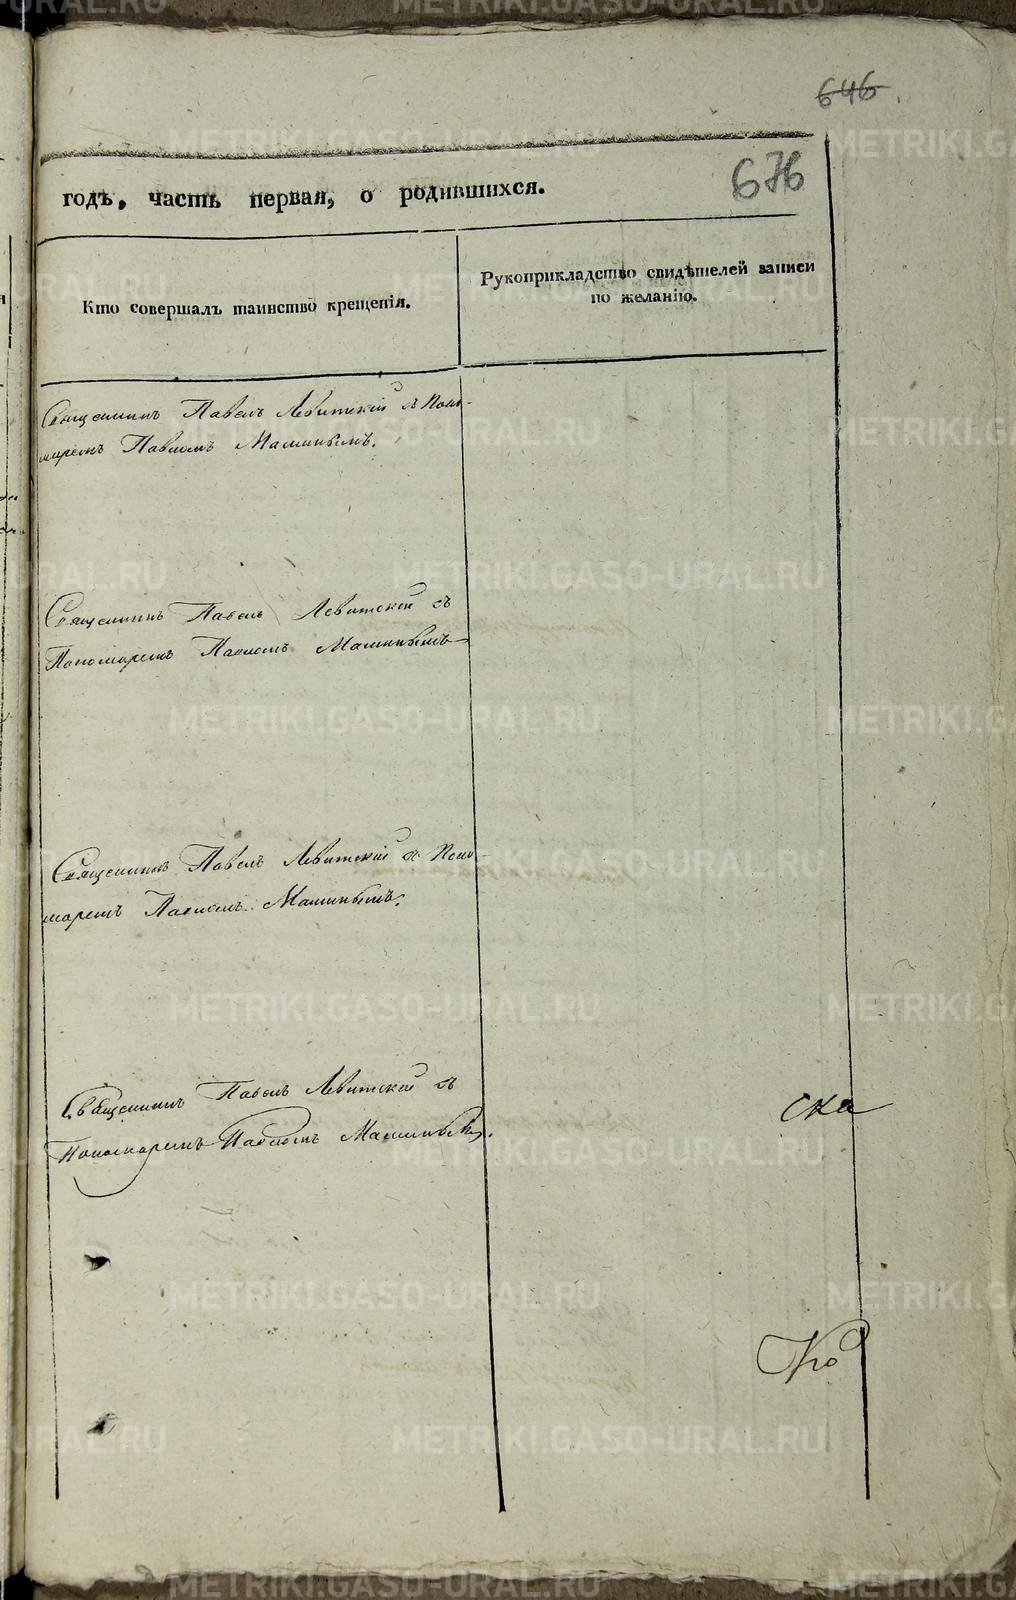 646
676
годъ, часть первая, о родившихся.
Кто совершалъ таинство крещенія.
Рукоприкладство свидѣтелей записи
по желанію.
Священникъ Павелъ Левитскій съ Поно-
маремъ Павломъ Маминымъ.
Священникъ Павелъ Левитскій съ
Пономаремъ Павломъ Маминымъ
Священникъ Павелъ Левитскій съ Поно
маремъ Павломъ Маминымъ.
Священникъ Павелъ Левитскій съ
Пономаремъ Павломъ Маминымъ.
ска
METRIKI.GASO-URAL.RU